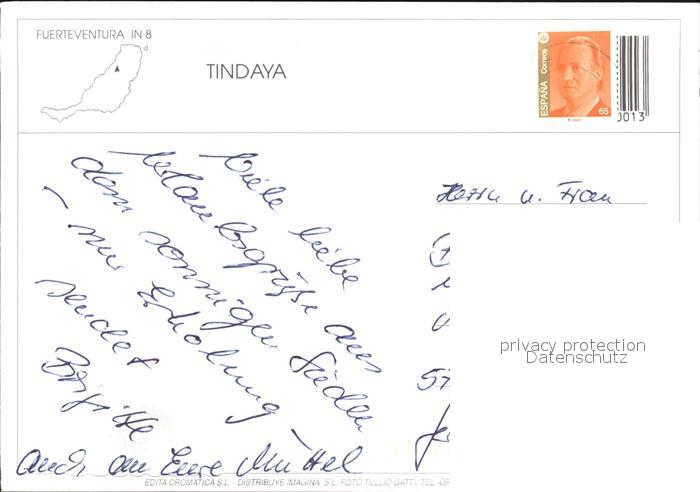 FUERTEVENTURA IN 8
TINDAYA
ESPAÑA Correos
65
0013
Viele liebe
Urlaubsgrüße aus
dem sonnigen Süden
– nur Erholung –
sendet
Brigitte
auch an Eure Muttel
Herrn u. Frau
57
privacy protection
Datenschutz
EDITA CROMATICA S.L. - DISTRIBUYE IMAGINA, S.L. FOTO TULLIO GATTI, TEL.